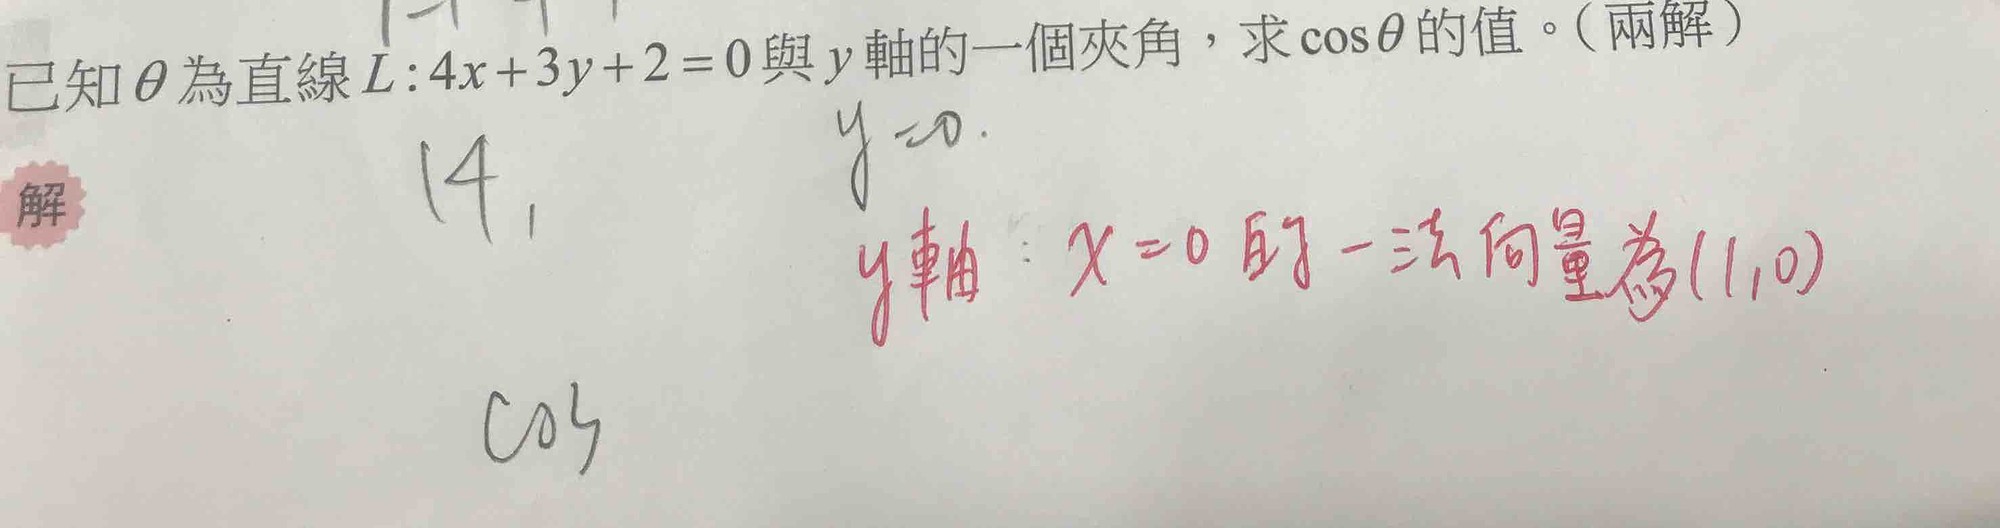 已知θ為直線L:4x+3y+2=0與y軸的一個夾角，求cosθ的值。(兩解)
y=0.
(4,
解
y軸:x=0的一法向量為(1,0)
cos